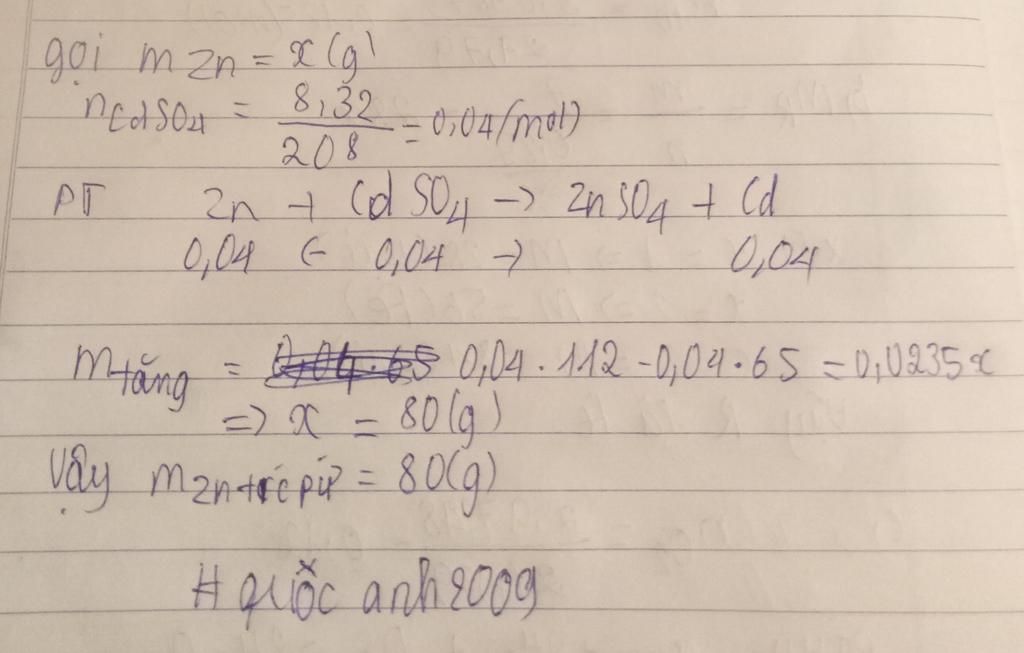 gọi m Zn = x (g)
nCdSO4 = 8,32 / 208 = 0,04 (mol)
PT Zn + CdSO4 → ZnSO4 + Cd
0,04 ← 0,04 → 0,04
m tăng = 0,04 . 112 - 0,04 . 65 = 0,0235x
=> x = 80 (g)
Vậy m Zn trc pứ = 80 (g)
# quốc anh 2009